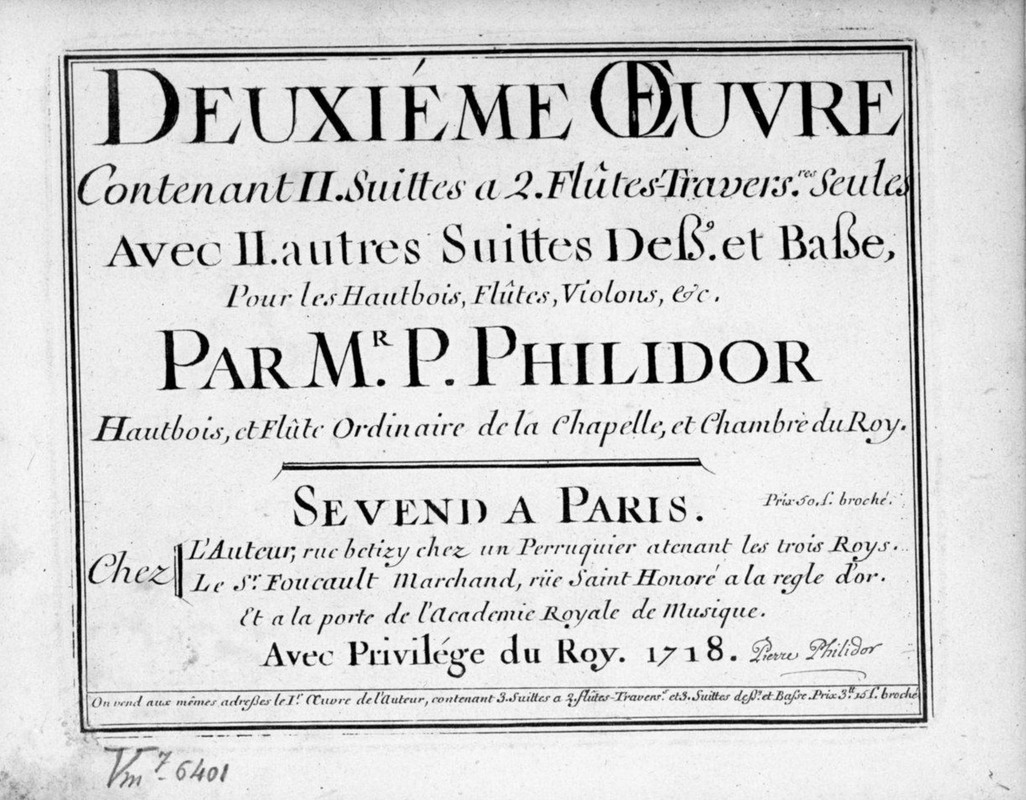 DEUXIÉME ŒUVRE
Contenant II. Suittes a 2. Flûtes-Travers.res Seules
Avec II. autres Suittes Deß.s et Baße,
Pour les Hautbois, Flûtes, Violons, &c.
PAR M.R P. PHILIDOR
Hautbois, et Flûte Ordinaire de la Chapelle, et Chambre du Roy.
SE VEND A PARIS.
Prix 50. ſ. broché.
Chez
L'Auteur, rue betizy chez un Perruquier atenant les trois Roys.
Le Sr. Foucault Marchand, rüe Saint Honoré a la regle d'or.
Et a la porte de l'Academie Royale de Musique.
Avec Privilége du Roy. 1718. Pierre Philidor
On vend aux mêmes adreßes le I.r Œuvre de l'Auteur, contenant 3. Suittes a 2. flûtes-Travers.s et 3. Suittes deß.s et Baße. Prix 3.tt 15 ſ. broché
Vm 7 6401